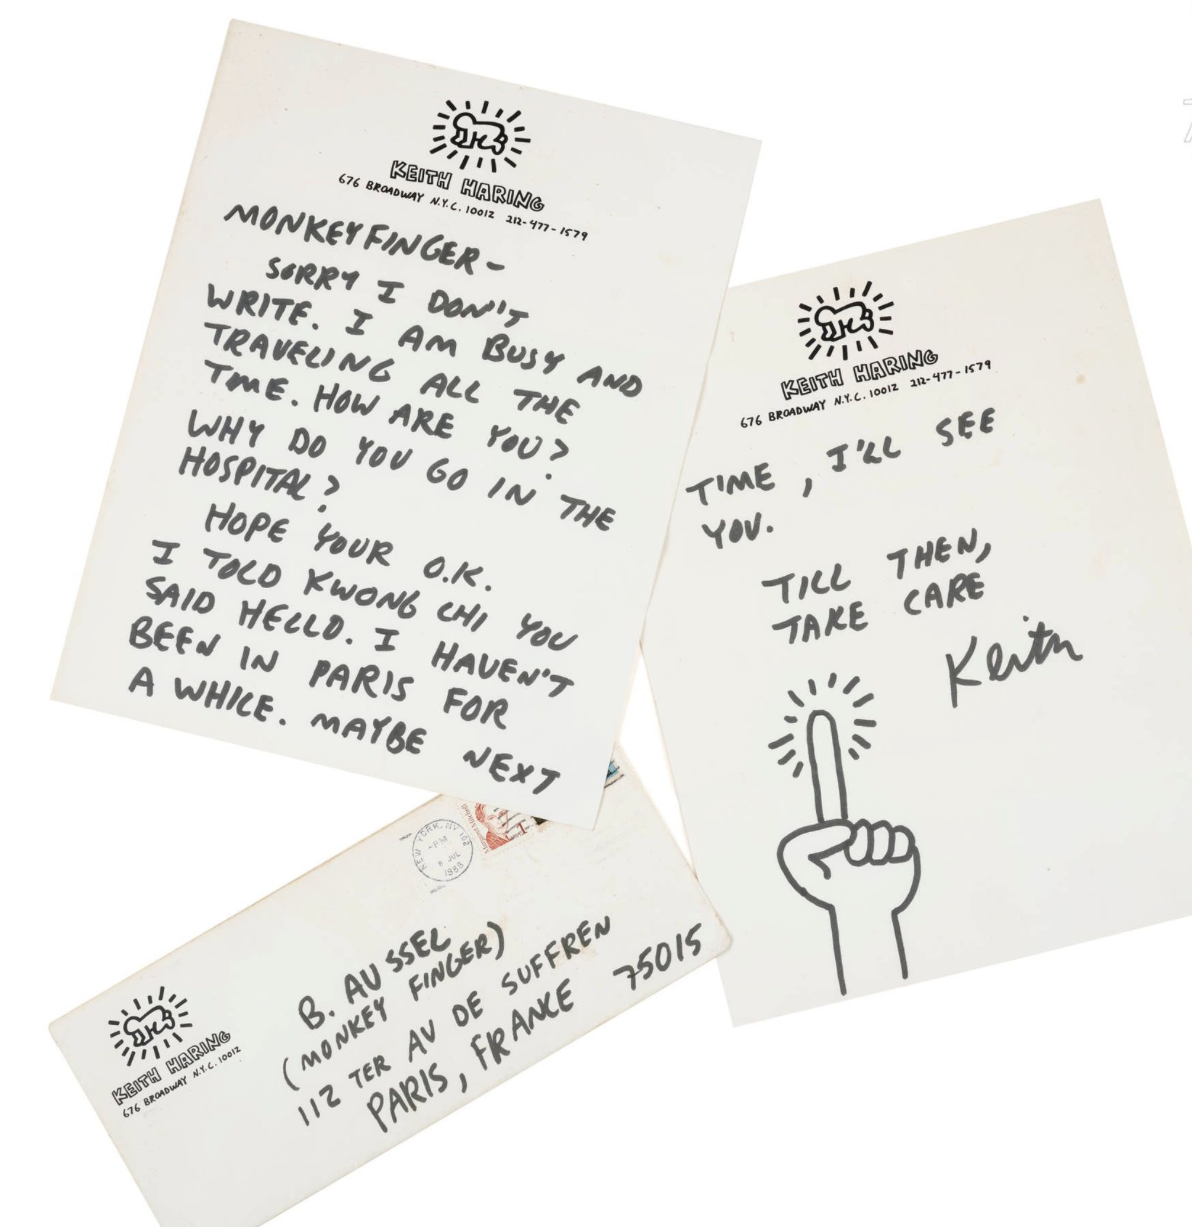 KEITH HARING
676 BROADWAY N.Y.C. 10012 212-477-1579
MONKEY FINGER-
SORRY I DON'T
WRITE. I AM BUSY AND
TRAVELING ALL THE
TIME. HOW ARE YOU?
WHY DO YOU GO IN THE
HOSPITAL?
HOPE YOUR O.K.
I TOLD KWONG CHI YOU
SAID HELLO. I HAVEN'T
BEEN IN PARIS FOR
A WHILE. MAYBE NEXT
KEITH HARING
676 BROADWAY N.Y.C. 10012 212-477-1579
TIME, I'LL SEE
YOU.
TILL THEN,
TAKE CARE
Keith
NEW YORK, NY 102
PM
8 JUL
B. AUSSEL
(MONKEY FINGER)
112 TER AV DE SUFFREN
PARIS, FRANCE 75015
KEITH HARING
676 BROADWAY N.Y.C. 10012